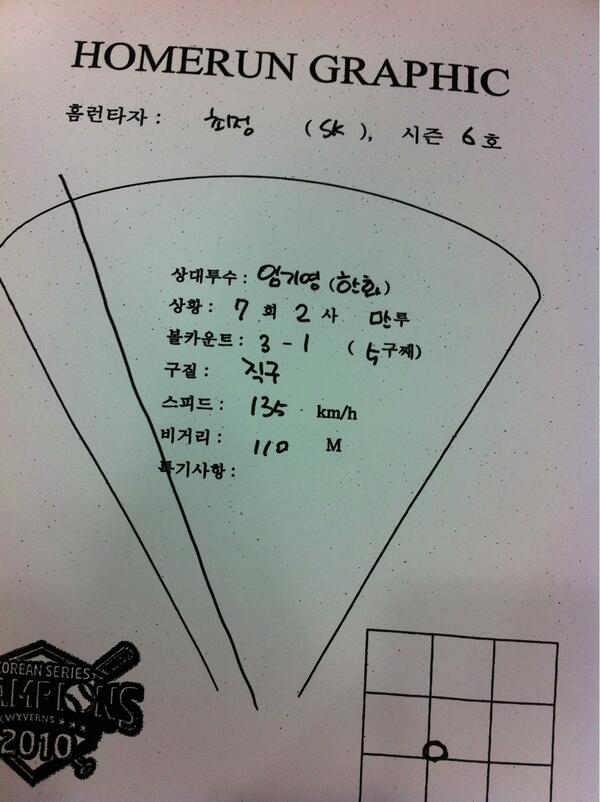 HOMERUN GRAPHIC
홈런타자 : 최정 (SK), 시즌 6호
상대투수 : 임기영 (한화)
상황 : 7 회 2 사 만루
볼카운트 : 3 - 1 (5구째)
구질 : 직구
스피드 : 135 km/h
비거리 : 110 M
특기사항 :
KOREAN SERIES
CHAMPIONS
SK WYVERNS
2010